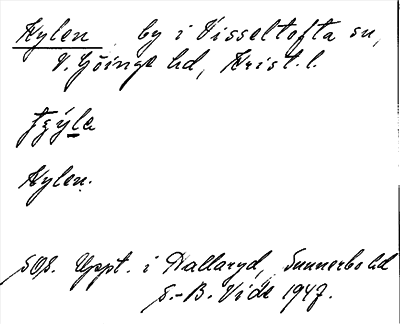 Kylen by i Visseltofta sn,
V. Göinge hd, Krist. l.
Kylen.
SOS. Uppt. i Hallaryd, Sunnerbo hd
S.-B. Vide 1947.